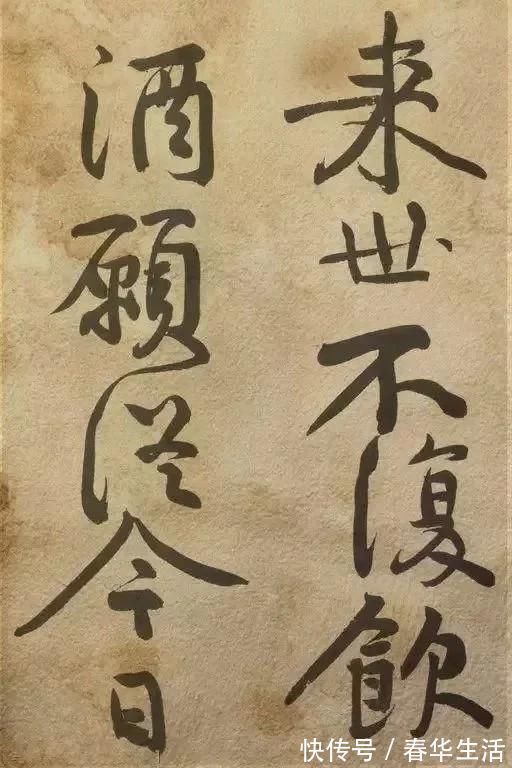 来世不復飲
酒願從今日
快传号/春华生活